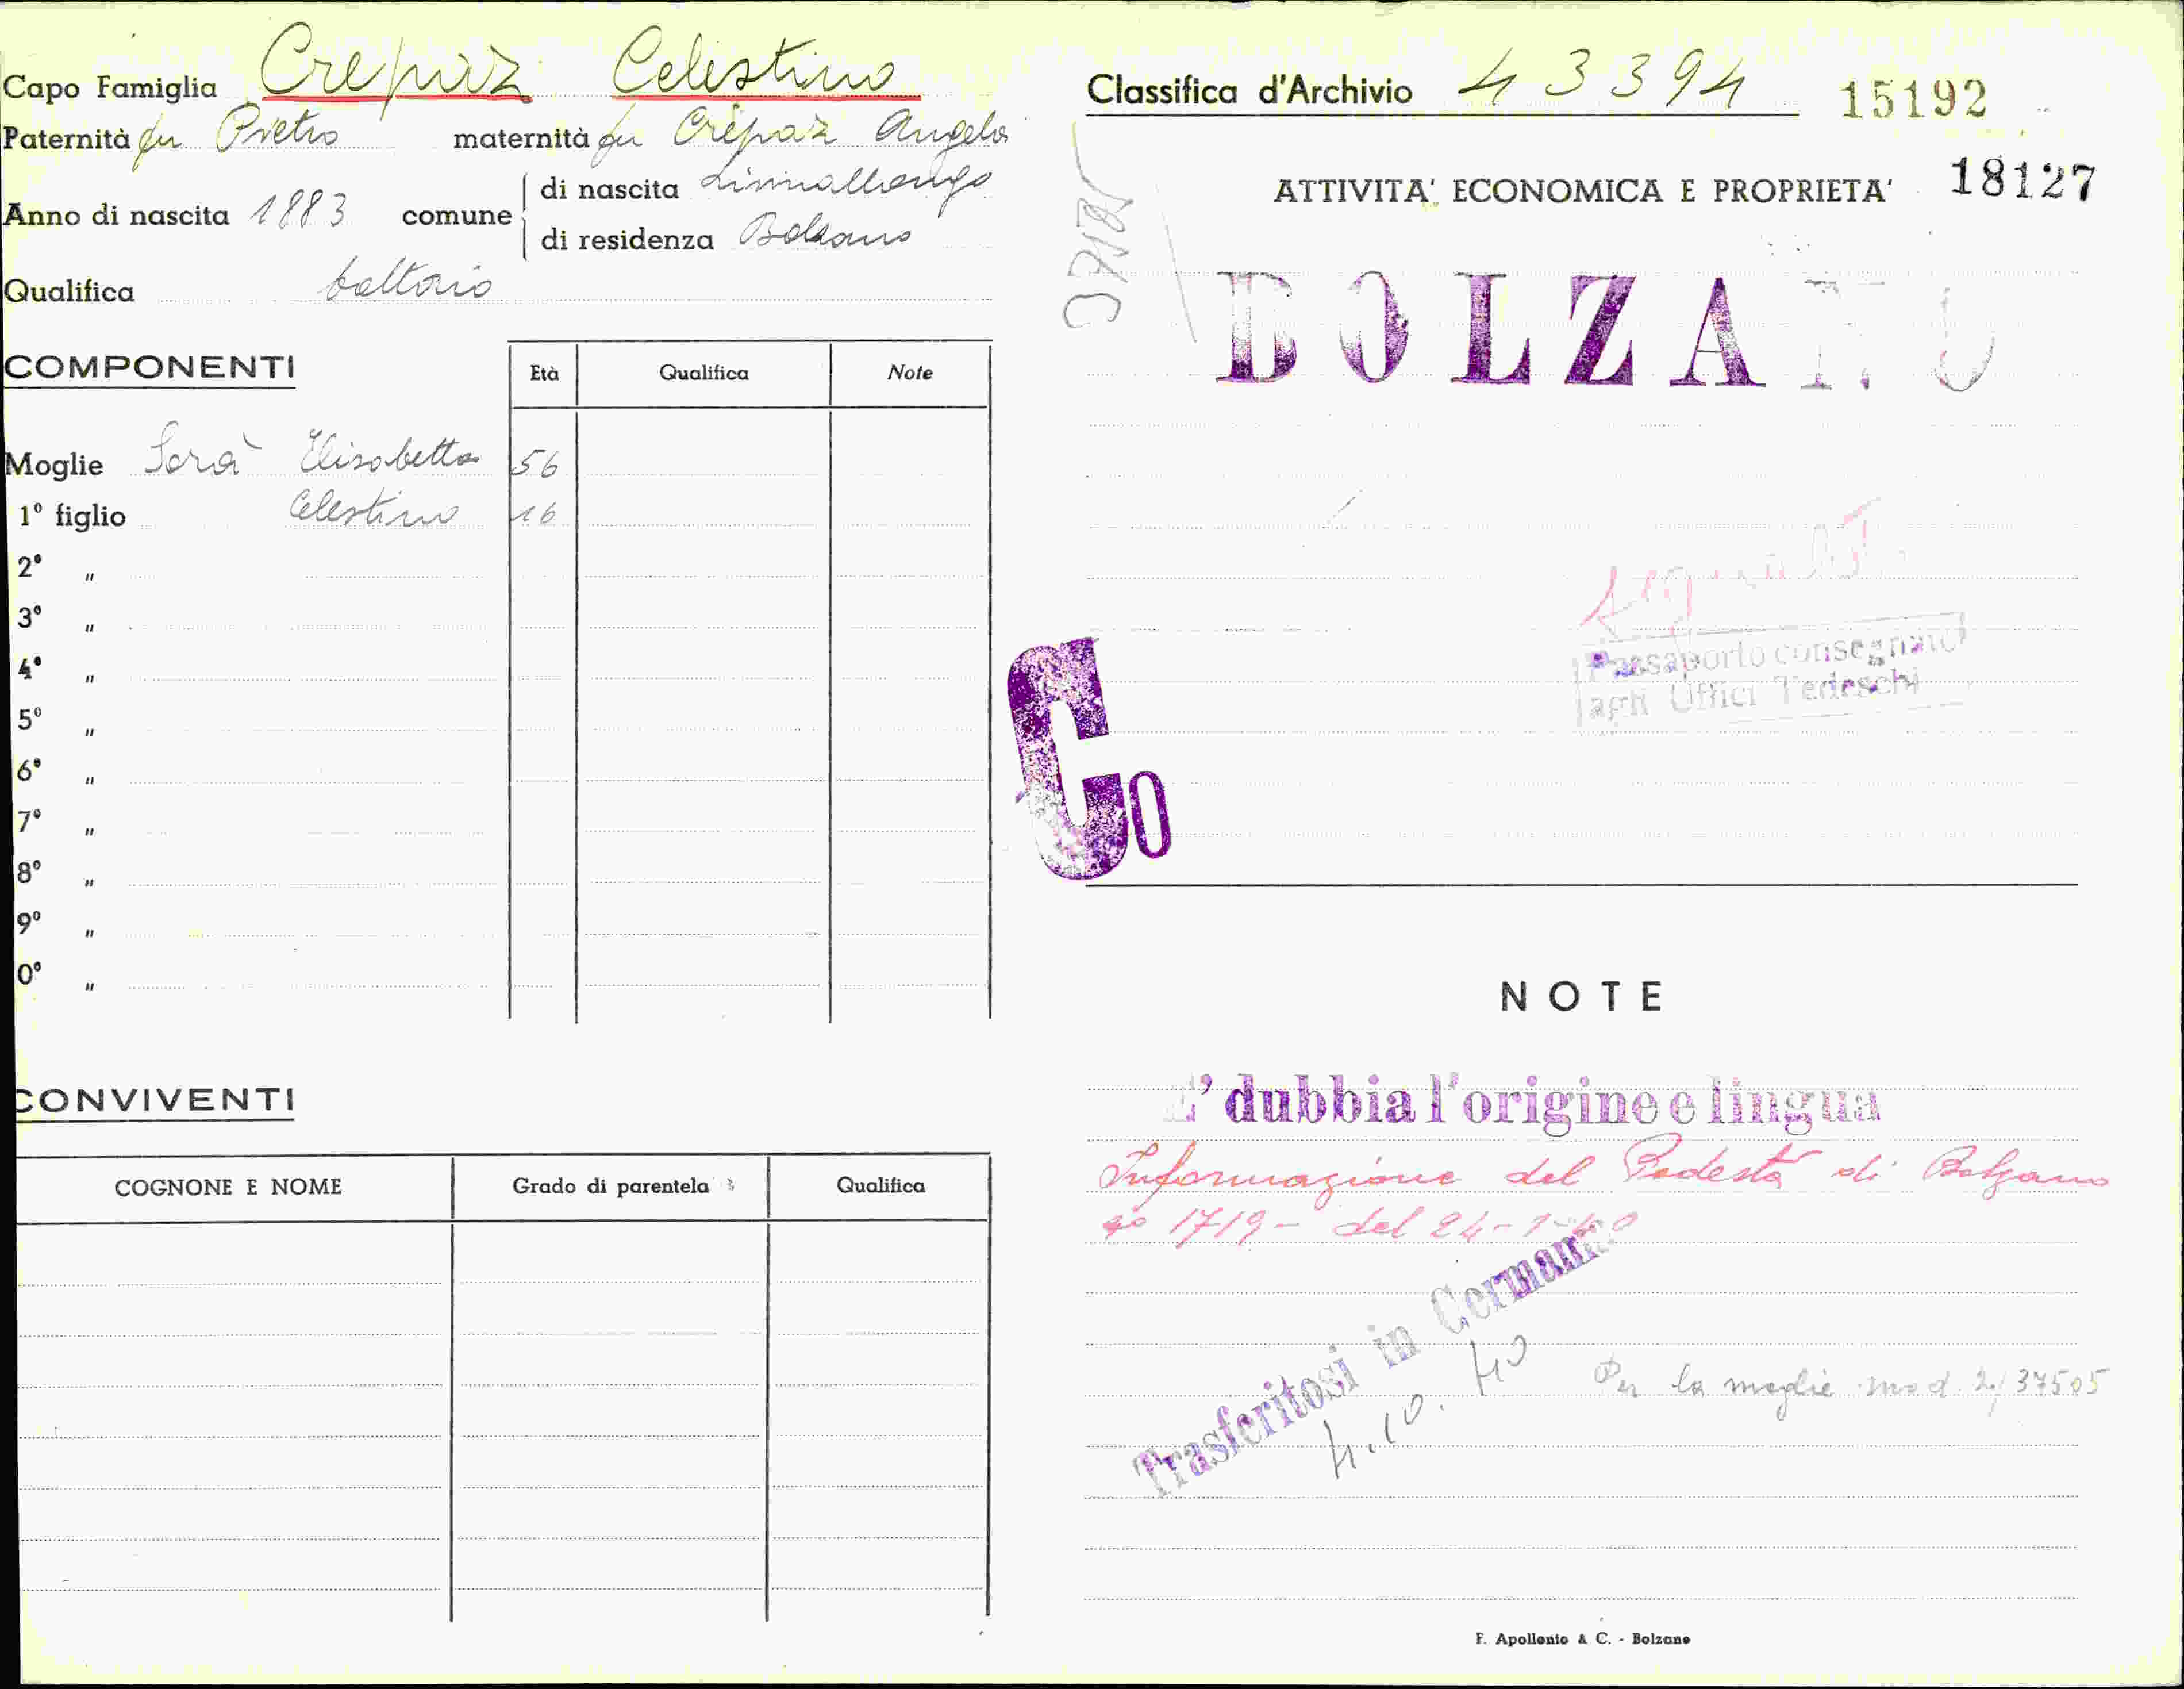 Capo Famiglia Crepaz Celestino
Paternità fu Pietro maternità fu Crepaz Angela
Anno di nascita 1883 comune di nascita Livinallongo
di residenza Bolzano
Qualifica
COMPONENTI Età Qualifica Note
Moglie Sorà Elisabetta 56
1º figlio Celestino 16
2º "
3º "
4º "
5º "
6º "
7º "
8º "
9º "
0º "
CONVIVENTI
COGNONE E NOME Grado di parentela Qualifica
Classifica d'Archivio 43394 15192
18127
ATTIVITA' ECONOMICA E PROPRIETA'
BOLZANO
Passaporto consegnato
agli Uffici Tedeschi
Co
NOTE
E' dubbia l'origine e lingua
Informazione del Podestà di Bolzano
nº 1719 - del 24-1-40
Trasferitosi in Germania
4.10.40
Per la moglie mod. 2/37505
F. Apollonio & C. - Bolzano